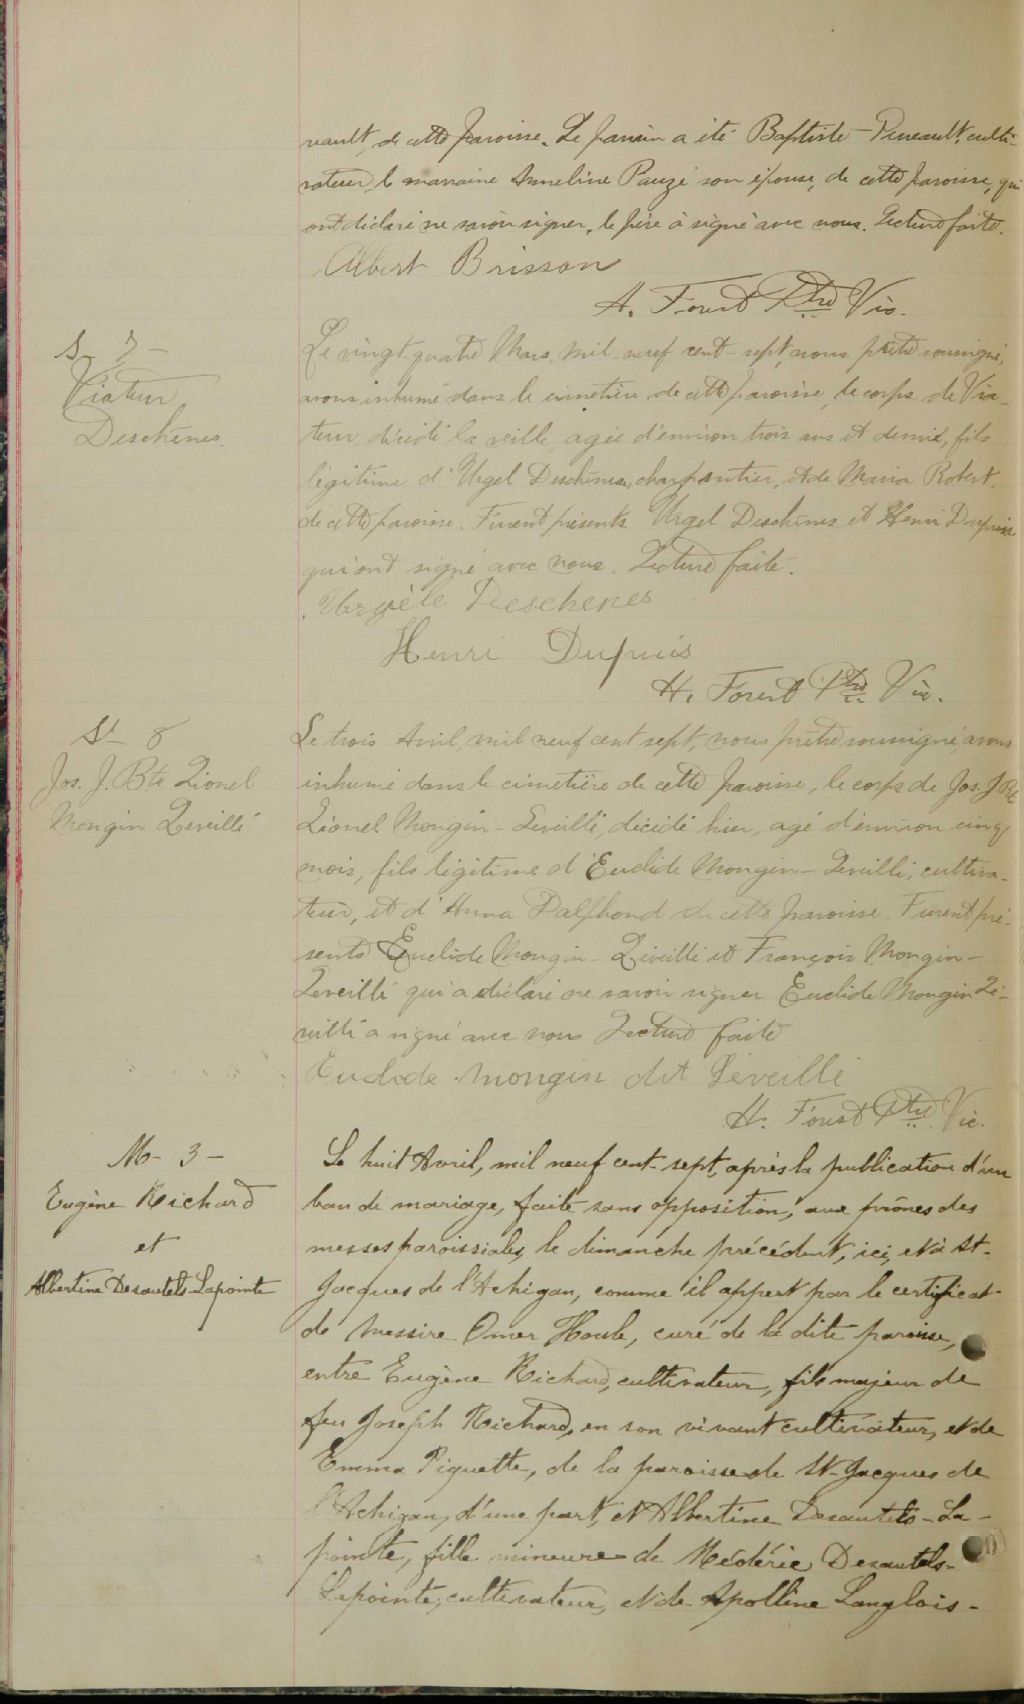 vault, de cette paroisse. Le parrain a été Baptiste Pineault, culti-
vateur, la marraine Anneline Pauzé son épouse, de cette paroisse, qui
ont déclaré ne savoir signer, le père à signé avec nous. Lecture faite.
Albert Brisson
H. Forest Ptre Vic.
S- 7-
Viateur
Deschênes.
Le vingt quatre Mars, mil neuf cent-sept, nous prêtre soussigné,
avons inhumé dans le cimetière de cette paroisse, le corps de Via-
teur, décédé la veille, agée d'environ trois ans et demie, fils
légitime d'Urgel Deschênes, charpentier, et de Maria Robert,
de cette paroisse. Furent présents Urgel Deschênes et Henri Dupuis
qui ont signé avec nous. Lecture faite.
Urgèle Deschenes
Henri Dupuis
H. Forest Ptre Vic.
S- 8
Jos. J. Bte Lionel
Mongin Leveillé
Le trois Avril, mil neuf cent sept, nous prêtre soussigné, avons
inhumé dans le cimetière de cette paroisse, le corps de Jos. J Bte
Lionel Mongin-Leveillé, décédé hier, agé d'environ cinq
mois, fils légitime d'Euclide Mongin-Leveillé, cultiva-
teur, et d'Anna Dalphond de cette paroisse. Furent pré-
sents Euclide Mongin-Léveillé et François Mongin-
Leveillé qui a déclaré ne savoir signer Euclide Mongin Lé-
veillé a signé avec nous Lecture faite
Euclide Mongin dit Léveillé
H. Forest Ptre Vic.
M- 3-
Eugène Richard
et
Albertine Desautels-Lapointe
Le huit Avril, mil neuf cent-sept, après la publication d'un
ban de mariage, faite sans opposition, aux prônes des
messes paroissiales, le dimanche précédent, ici, et à St-
Jacques de l'Achigan, comme il appert par le certificat
de Messire Omer Houle, curé de la dite paroisse,
entre Eugène Richard, cultivateur, fils majeur de
feu Joseph Richard, en son vivant cultivateur, et de
Emma Piquette, de la paroisse de St-Jacques de
l'Achigan, d'une part, et Albertine Desautels-La-
pointe, fille mineure de Médéric Desautels-
Lapointe, cultivateur, et de Apolline Langlois-